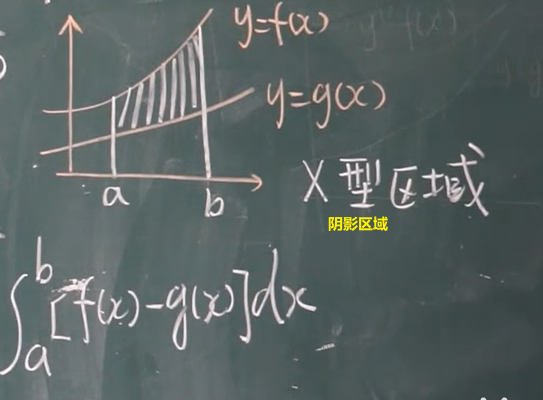 y=f(x)
y=g(x)
a
b
X型区域
阴影区域
∫_a^b [f(x)-g(x)]dx